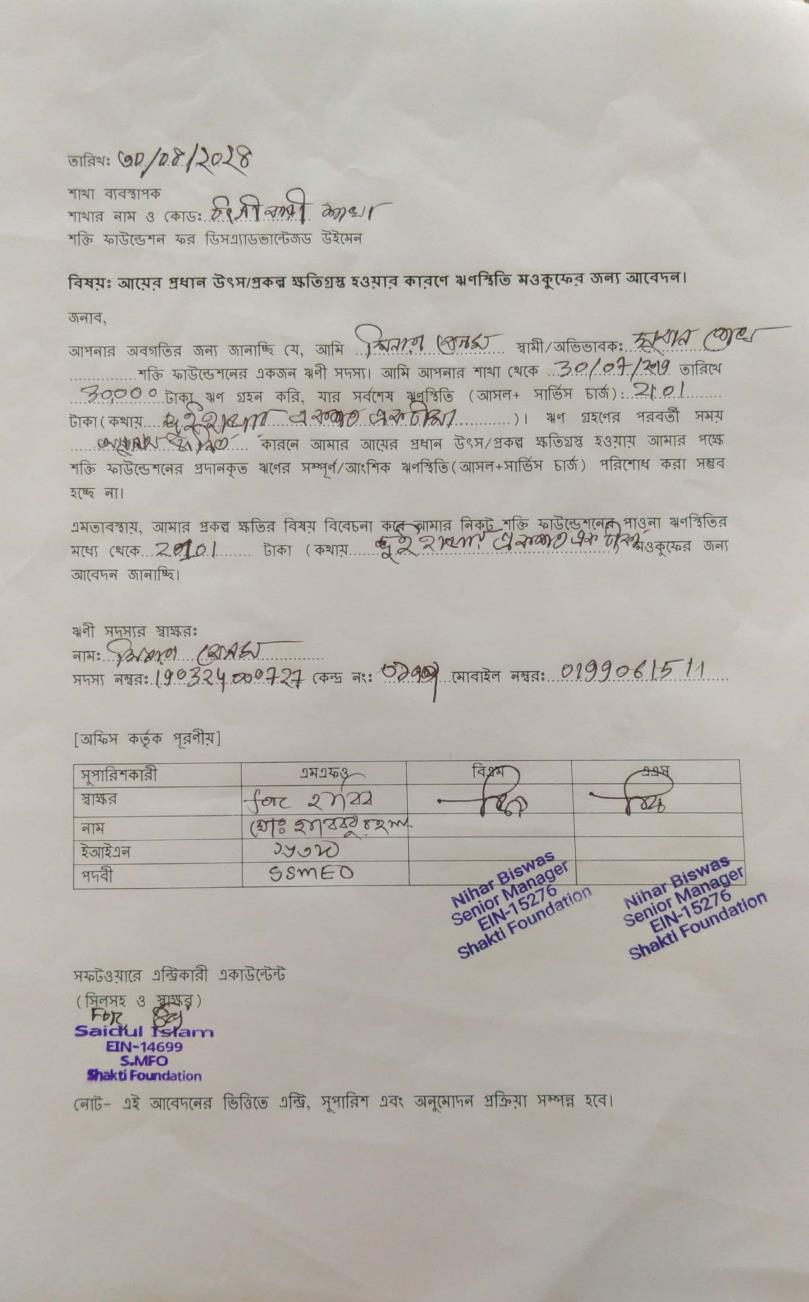 তারিখ: ৩০/০৪/২০২৪
শাখা ব্যবস্থাপক
শাখার নাম ও কোড:
শক্তি ফাউন্ডেশন ফর ডিসএ্যাডভান্টেজড উইমেন
বিষয়: আয়ের প্রধান উৎস/প্রকল্প ক্ষতিগ্রস্থ হওয়ার কারণে ঋণস্থিতি মওকুফের জন্য আবেদন।
জনাব,
আপনার অবগতির জন্য জানাচ্ছি যে, আমি স্বামী/অভিভাবক:
শক্তি ফাউন্ডেশনের একজন ঋণী সদস্য। আমি আপনার শাখা থেকে 30/07/2019 তারিখে
30,000 টাকা ঋণ গ্রহন করি, যার সর্বশেষ ঋণস্থিতি (আসল+ সার্ভিস চার্জ): 2101
টাকা (কথায় দুই হাজার একশত এক টাকা )। ঋণ গ্রহণের পরবর্তী সময়
কারনে আমার আয়ের প্রধান উৎস/প্রকল্প ক্ষতিগ্রস্থ হওয়ায় আমার পক্ষে
শক্তি ফাউন্ডেশনের প্রদানকৃত ঋণের সম্পূর্ণ/আংশিক ঋণস্থিতি(আসল+সার্ভিস চার্জ) পরিশোধ করা সম্ভব
হচ্ছে না।
এমতাবস্থায়, আমার প্রকল্প ক্ষতির বিষয় বিবেচনা করে আমার নিকট শক্তি ফাউন্ডেশনের পাওনা ঋণস্থিতির
মধ্যে থেকে 2101 টাকা (কথায় দুই হাজার একশত এক টাকা মওকুফের জন্য
আবেদন জানাচ্ছি।
ঋণী সদস্যর স্বাক্ষর:
নাম:
সদস্য নম্বর: 190324000727 কেন্দ্র নং: মোবাইল নম্বর: 0199061511
[অফিস কর্তৃক পূরণীয়]
সুপারিশকারী এমএফও বিএম এএম
স্বাক্ষর for
নাম
ইআইএন
পদবী SSMEO
Nihar Biswas
Senior Manager
EIN-15276
Shakti Foundation
Nihar Biswas
Senior Manager
EIN-15276
Shakti Foundation
সফটওয়ারে এন্ট্রিকারী একাউন্টেন্ট
(সিলসহ ও স্বাক্ষর)
For
Saidul Islam
EIN-14699
S.MFO
Shakti Foundation
নোট- এই আবেদনের ভিত্তিতে এন্ট্রি, সুপারিশ এবং অনুমোদন প্রক্রিয়া সম্পন্ন হবে।